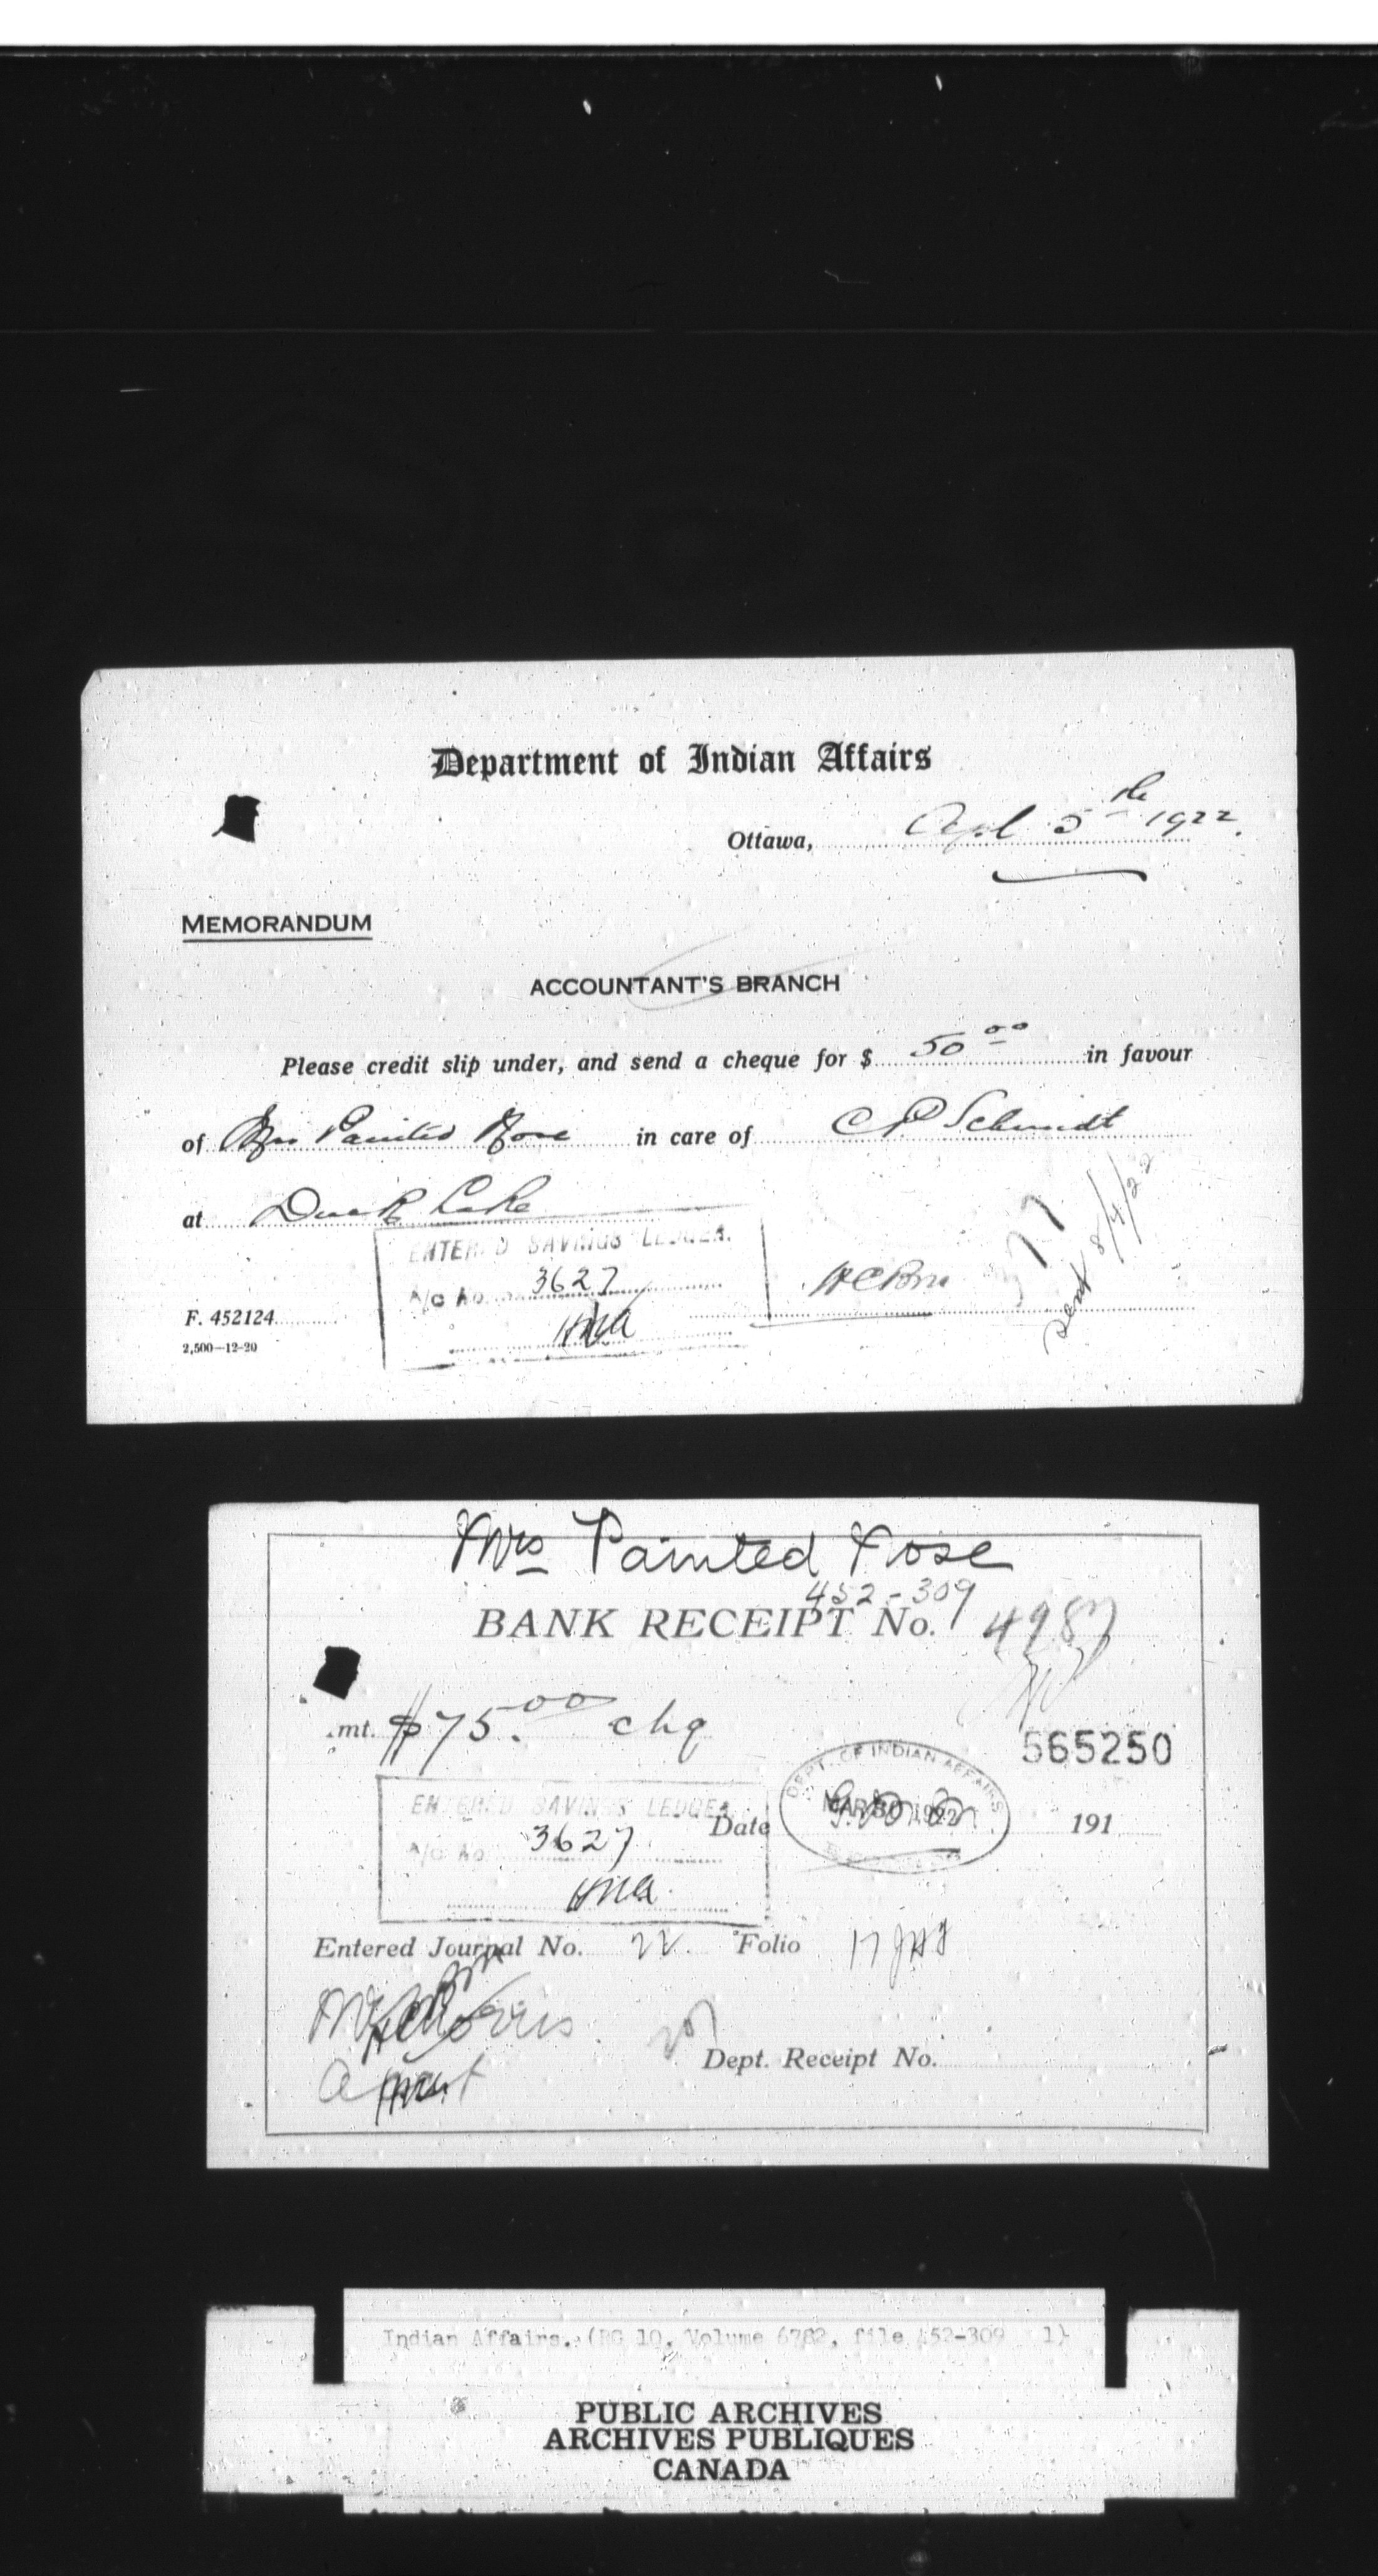 Department of Indian Affairs
Ottawa, Apl 5th 1922.
MEMORANDUM
ACCOUNTANT'S BRANCH
Please credit slip under, and send a cheque for $ 50 00 in favour
of Mrs Painted Nose in care of C P Schmidt
at Duck Lake
ENTERED SAVINGS LEDGER.
A/c No. 3627
F. 452124
2,500—12-20
77
Sent 8/4/22
Mrs Painted Nose
452-309
BANK RECEIPT No. 4987
mt. $75.00 chq
565250
DEPT. OF INDIAN AFFAIRS
MAR 30 1922
ENTERED SAVINGS LEDGER
Date 191
A/c No 3627
Entered Journal No. 22. Folio 17
Dept. Receipt No.
Indian Affairs. (RG 10, Volume 6782, file 452-309 1)
PUBLIC ARCHIVES
ARCHIVES PUBLIQUES
CANADA